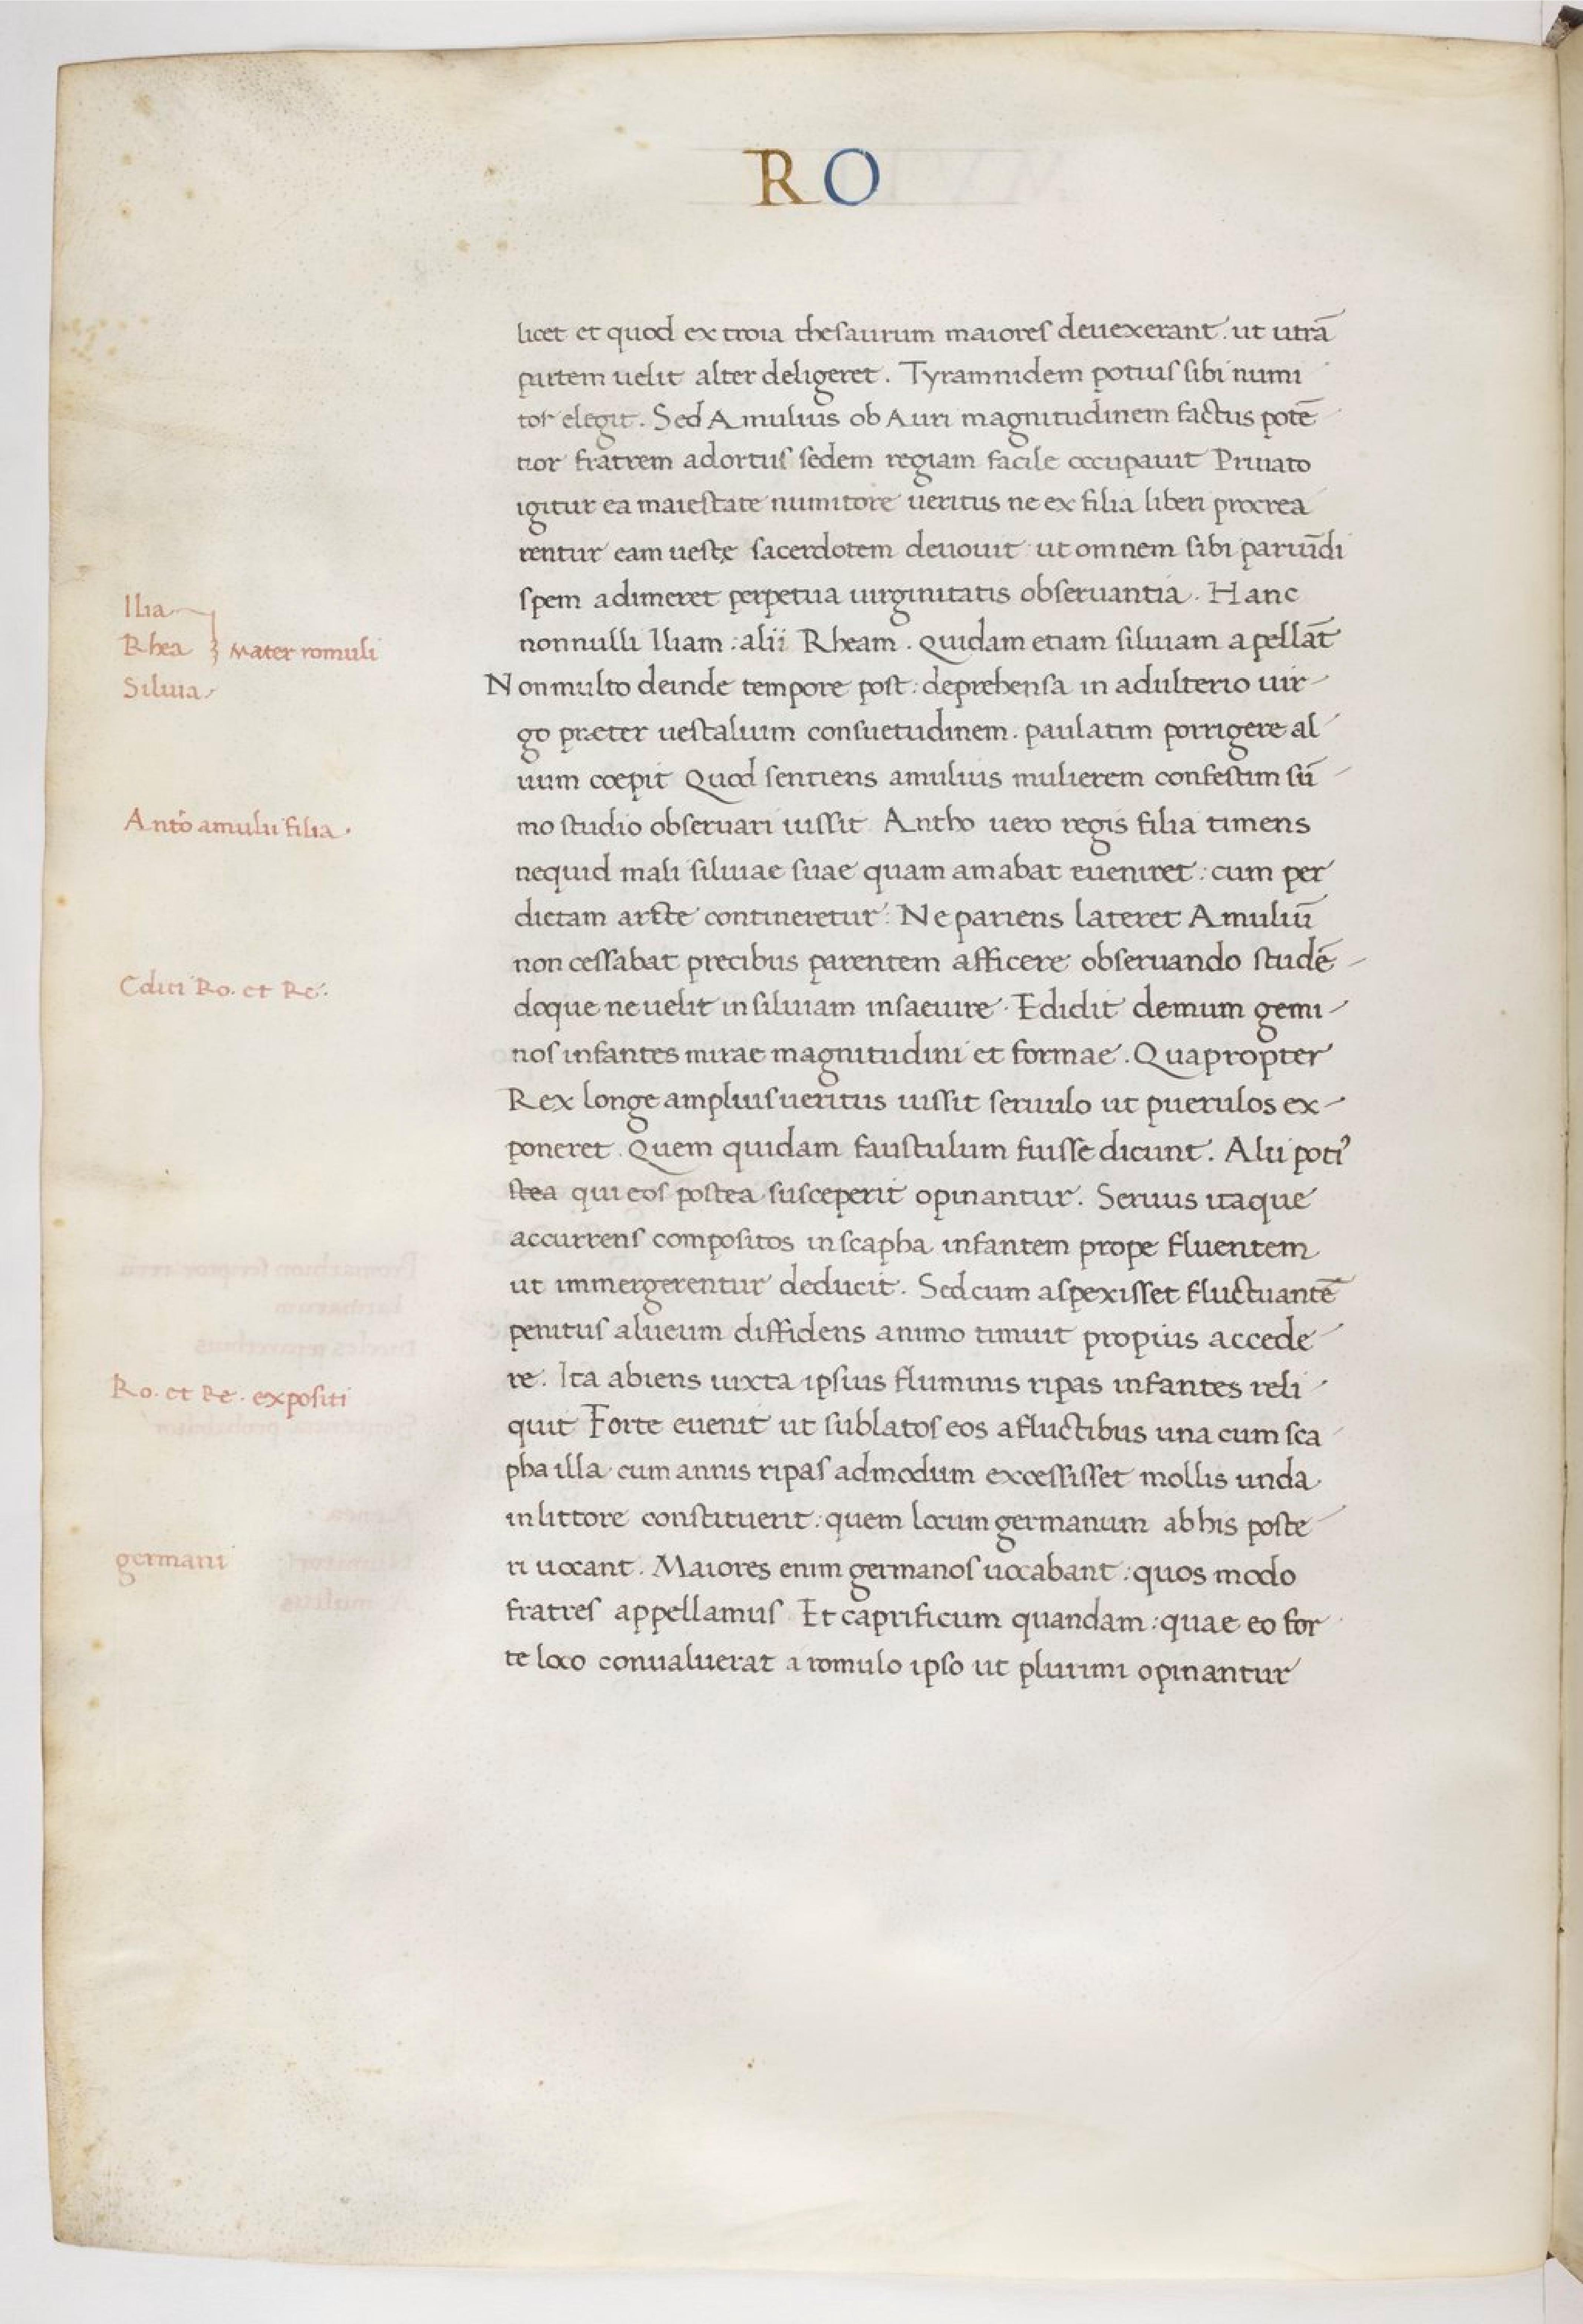 RO
licet et quod ex troia thesaurum maiores deuexerant. ut utrā
partem uelit alter deligeret. Tyramnidem potius sibi numi
tor elegit. Sed Amulius ob Auri magnitudinem factus potē
tior fratrem adortus sedem regiam facile occupauit Priuato
igitur ea maiestate numitore ueritus ne ex filia liberi procrea
rentur eam uestę sacerdotem deuouit ut omnem sibi pariūdi
spem adimeret perpetua uirginitatis obseruantia. Hanc
Ilia
nonnulli Iliam: alii Rheam. quidam etiam siluiam apellāt
Rhea } Mater romuli
Siluia
Non multo deinde tempore post: deprehensa in adulterio uir-
go præter uestalium consuetudinem. paulatim porrigere al-
uum coepit Quod sentiens amulius mulierem confestim sū-
Antō amulii filia.
mo studio obseruari iussit Antho uero regis filia timens
nequid mali siluiae suae quam amabat eueniret: cum per
dietam arcte contineretur: Ne pariens lateret Amuliū
non cessabat precibus parentem afficere obseruando studē-
Editi Ro. et Re.
doque ne uelit in siluiam insaeuire. Edidit demum gemi-
nos infantes mirae magnitudini et formae. Quapropter
Rex longe amplius ueritus iussit seruulo ut puerulos ex-
poneret. Quem quidam faustulum fuisse dicunt. Alii poti⁹
stea qui eos postea susceperit opinantur. Seruus itaque
accurrens compositos in scapha infantem prope fluentem
ut immergerentur deducit. Sed cum aspexisset fluctuantē
penitus alueum diffidens animo timuit propius accede-
Ro. et Re. expositi
re. Ita abiens iuxta ipsius fluminis ripas infantes reli-
quit Forte euenit ut sublatos eos a fluctibus una cum sca-
pha illa cum annis ripas admodum excessisset mollis unda
in littore constituerit: quem locum germanum ab his poste-
germani
ri uocant. Maiores enim germanos uocabant: quos modo
fratres appellamus Et caprificum quandam: quae eo for-
te loco conualuerat a romulo ipso ut plurimi opinantur